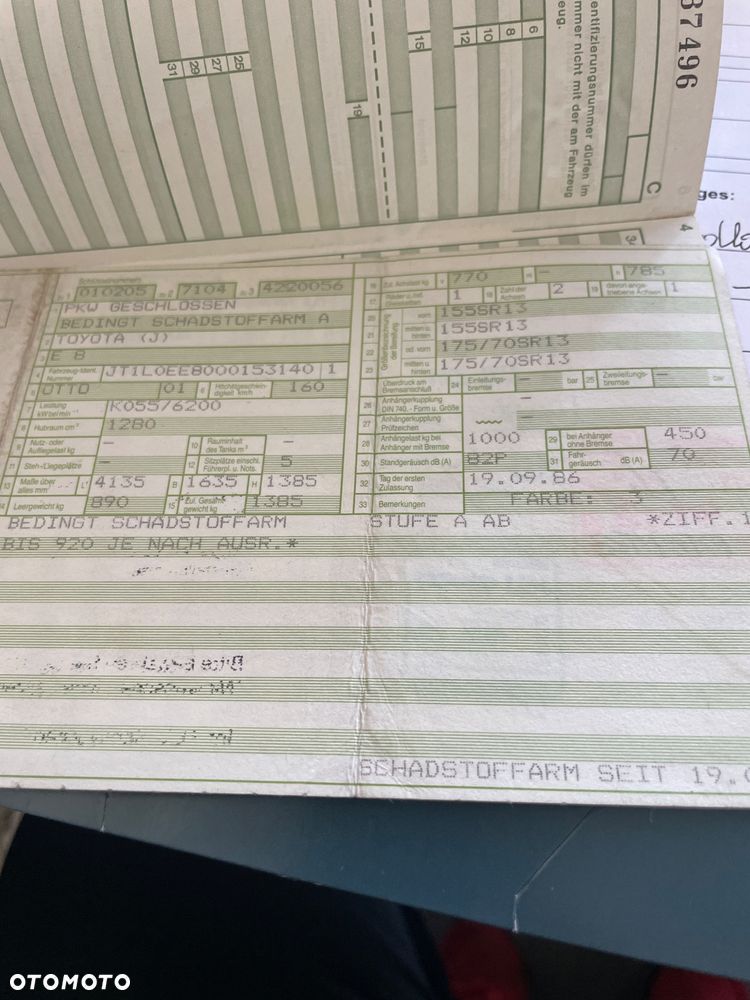 87496
C
entifizierungsnummer dürfen im
mmer nicht mit der am Fahrzeug
eug.
6
8
10
12
15
19
25
27
29
31
ges:
4
Schlüsselnummern
zu 1 010205 zu 2 7104 zu 3 4220056
1 PKW GESCHLOSSEN
BEDINGT SCHADSTOFFARM A
2 TOYOTA (J)
3 E 8
4 Fahrzeug-Ident. Nummer JT1L0EE8000153140 1
5 OTTO 01 6 Höchstgeschwindigkeit km/h 160
7 Leistung kW bei min⁻¹ K055/6200
8 Hubraum cm³ 1280
9 Nutz- oder Aufliegelast kg – 10 Rauminhalt des Tanks m³ –
11 Steh-/Liegeplätze – 12 Sitzplätze einschl. Führerpl. u. Nots. 5
13 Maße über alles mm L 4135 B 1635 H 1385
14 Leergewicht kg 890 15 Zul. Gesamtgewicht kg 1385
16 Zul. Achslast kg v 770 m – h 785
17 Räder u./od. Gleisketten 1 18 Zahl der Achsen 2 19 davon angetriebene Achsen 1
Größenbezeichnung der Bereifung
20 vorn 155SR13
21 mitten u. hinten 155SR13
22 od. vorn 175/70SR13
23 mitten u. hinten 175/70SR13
Überdruck am Bremsanschluß 24 Einleitungsbremse – bar 25 Zweileitungsbremse – bar
26 Anhängerkupplung DIN 740.- Form u. Größe –
27 Anhängerkupplung Prüfzeichen –
28 Anhängelast kg bei Anhänger mit Bremse 1000 29 bei Anhänger ohne Bremse 450
30 Standgeräusch dB (A) 82P 31 Fahrgeräusch dB (A) 70
32 Tag der ersten Zulassung 19.09.86
33 Bemerkungen FARBE: 3
BEDINGT SCHADSTOFFARM STUFE A AB *ZIFF.1
BIS 920 JE NACH AUSR.*
SCHADSTOFFARM SEIT 19.0
OTOMOTO